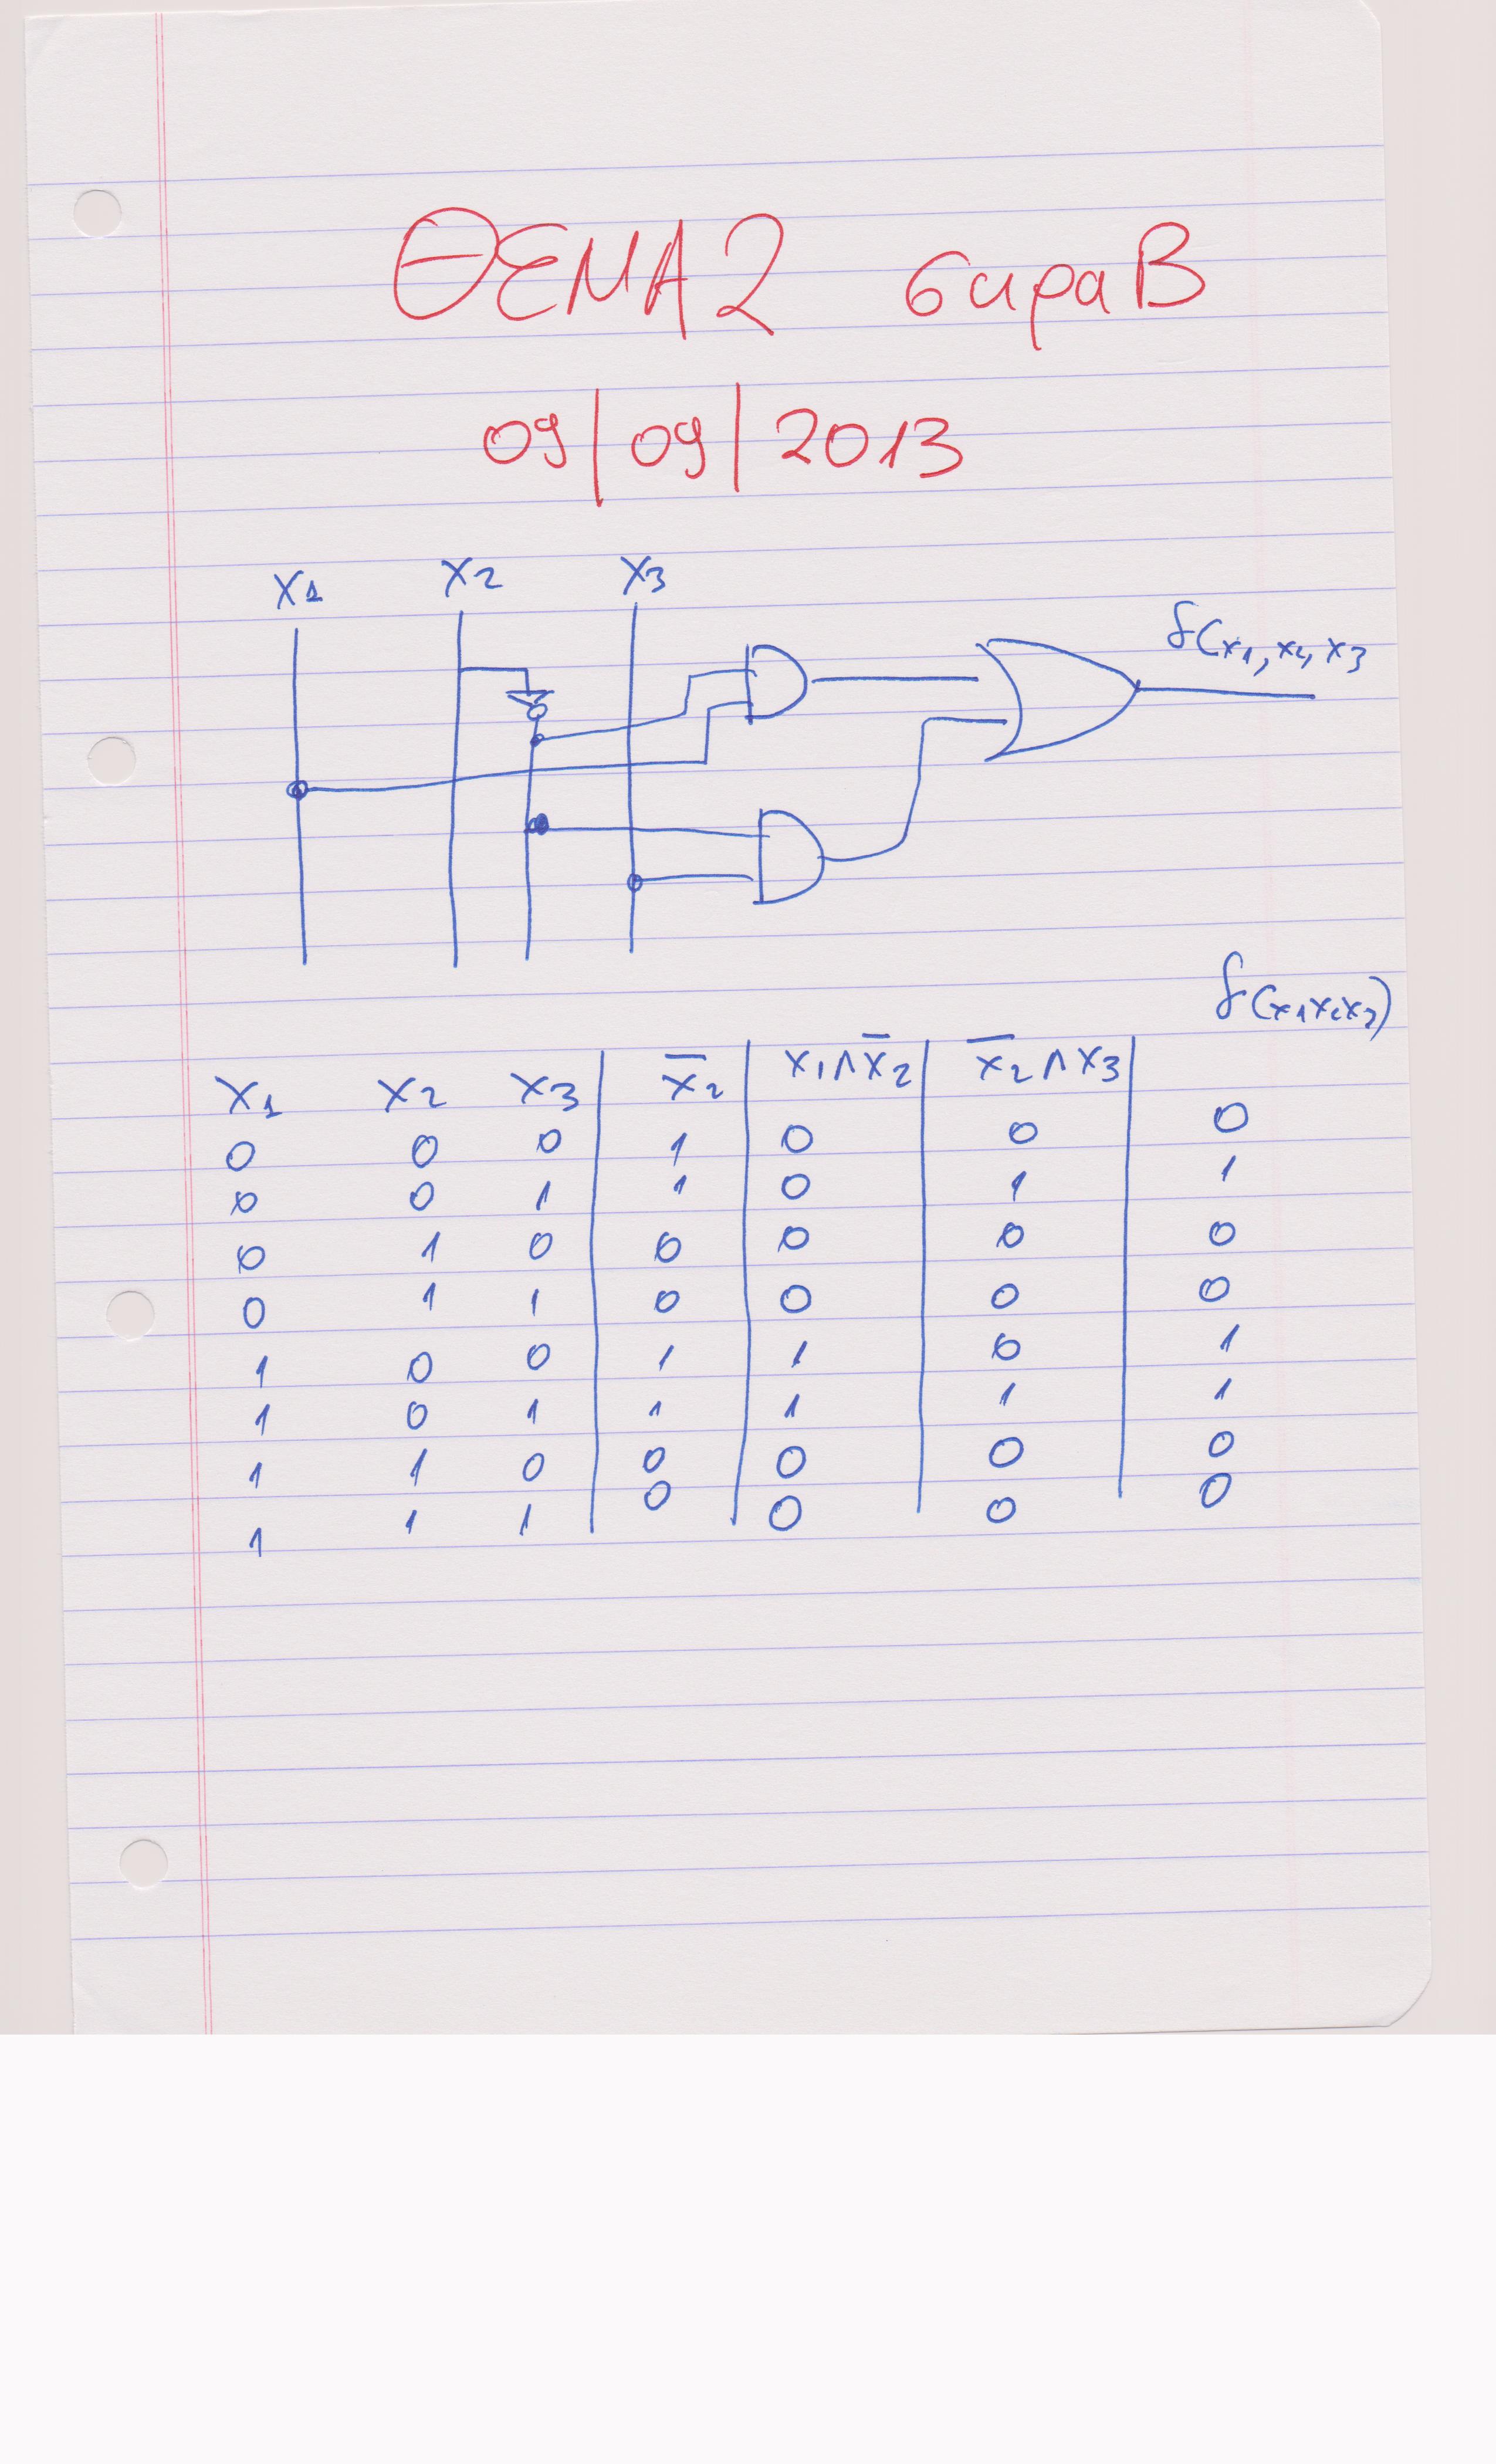 ΘΕΜΑ 2 σειρα Β
09/09/2013
X1 X2 X3
f(x1, x2, x3
f(x1x2x3)
X1 X2 X3 x̅2 x1∧x̅2 x̅2∧x3
0 0 0 1 0 0 0
0 0 1 1 0 1 1
0 1 0 0 0 0 0
0 1 1 0 0 0 0
1 0 0 1 1 0 1
1 0 1 1 1 1 1
1 1 0 0 0 0 0
1 1 1 0 0 0 0